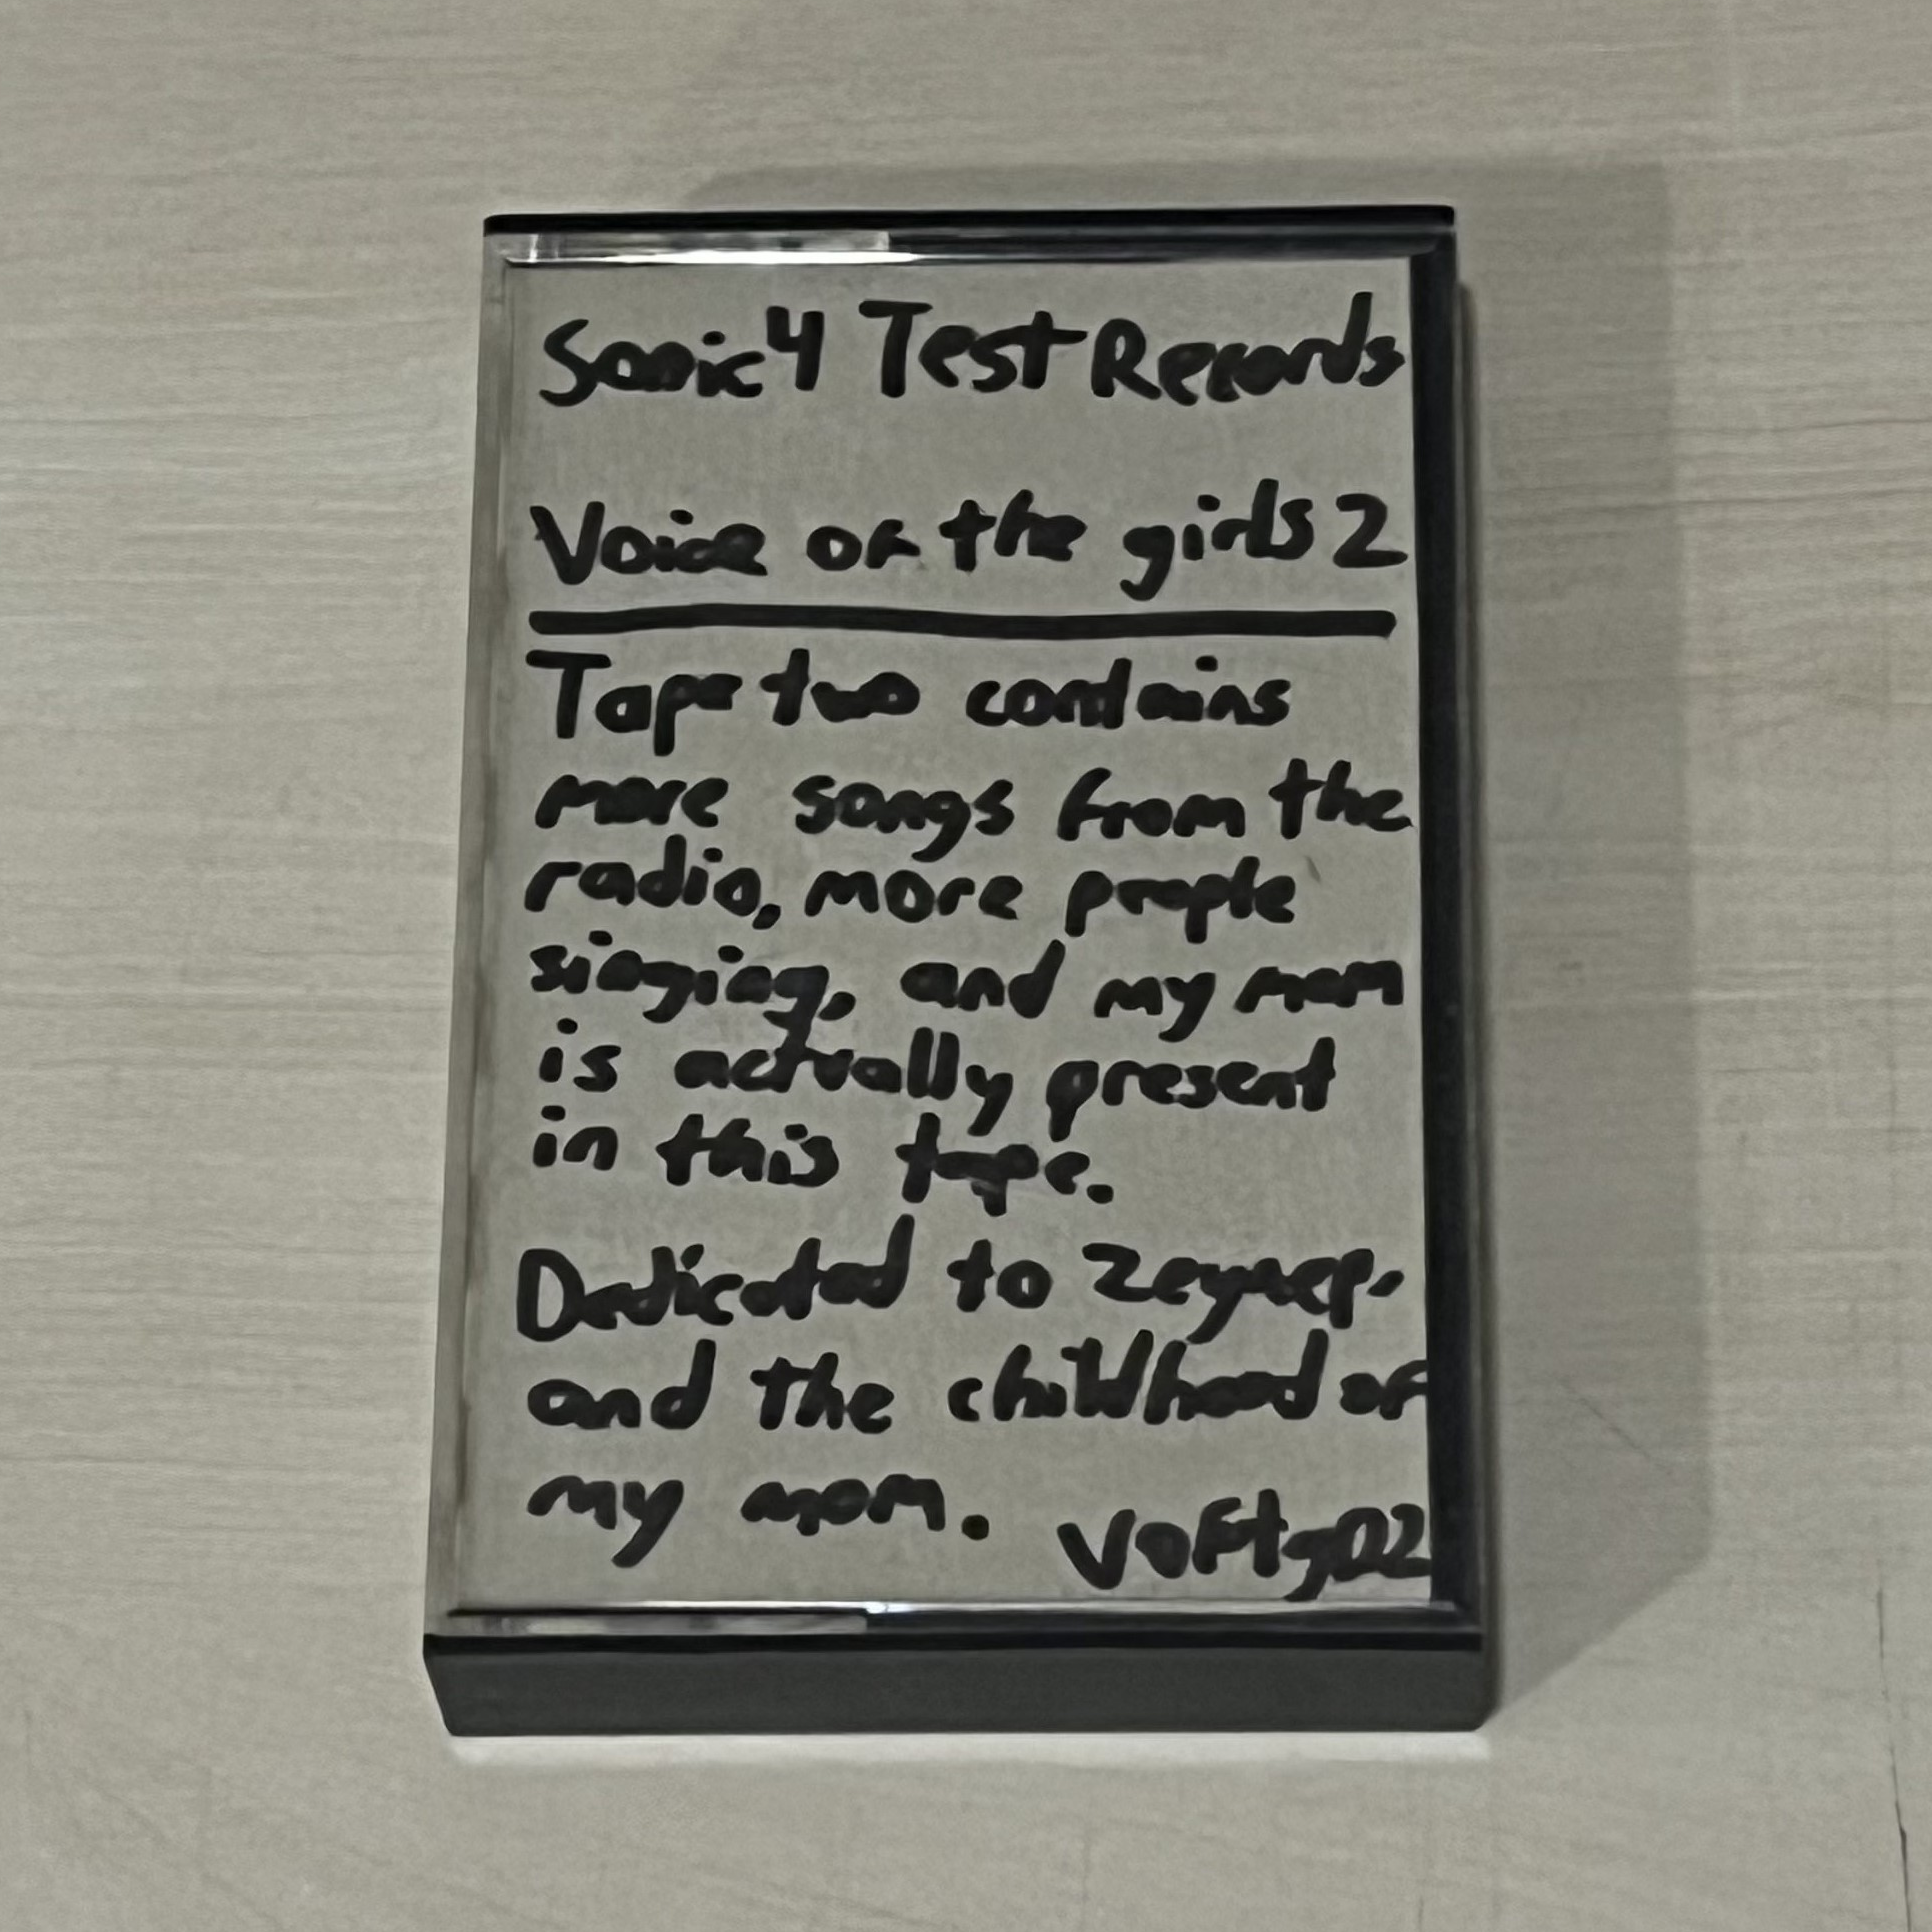 Sonic4 Test Records
Voice of the girls 2
Tape two contains
more songs from the
radio, more people
singing, and my mom
is actually present
in this tape.
Dedicated to Zeynep,
and the childhood of
my mom.
VoFtg02